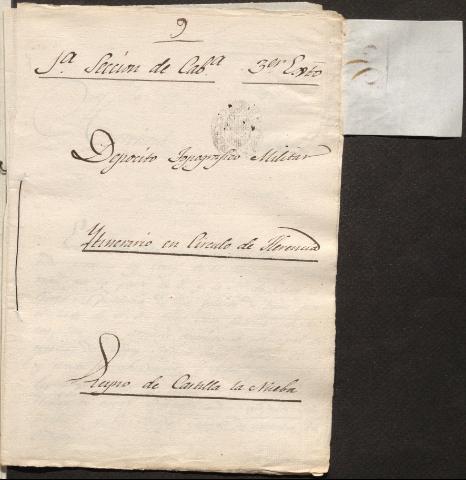 9
1ª Seccion de Cabª 3er Exto
Deposito Topografico Militar
Ytinerario en Circulo de Herencia
Reyno de Castilla la Nueba